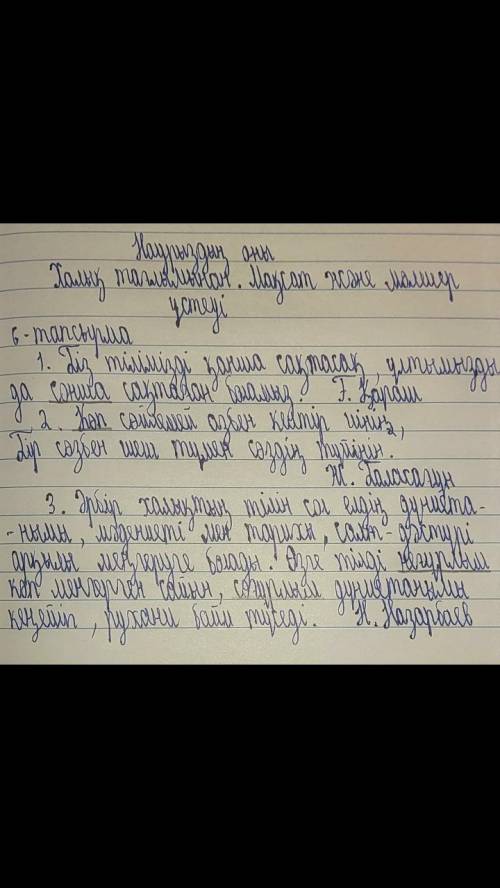 Наурыздың оны
Халық тағлымынан. Мақсат және мөлшер
үстеуі
6-тапсырма
1. Біз тілімізді қанша сақтасақ, ұлтымызды
да сонша сақтаған боламыз. Ғ. Қараш
2. Көп сөйлемей азбен кептір иініне,
Бір сөзбен шеш түмен сөздің түйінін.
Ж. Баласағұн
3. Әрбір халықтың тілін сол елдің дүниета-
-нымы, мәдениеті мен тарихы, салт-дәстүрі
арқылы меңгеруге болады. Өзге тілді неғұрлым
көп меңгерген сайын, соғұрлым дүниетанымы
кеңейіп, рухани байи түседі. Н. Назарбаев